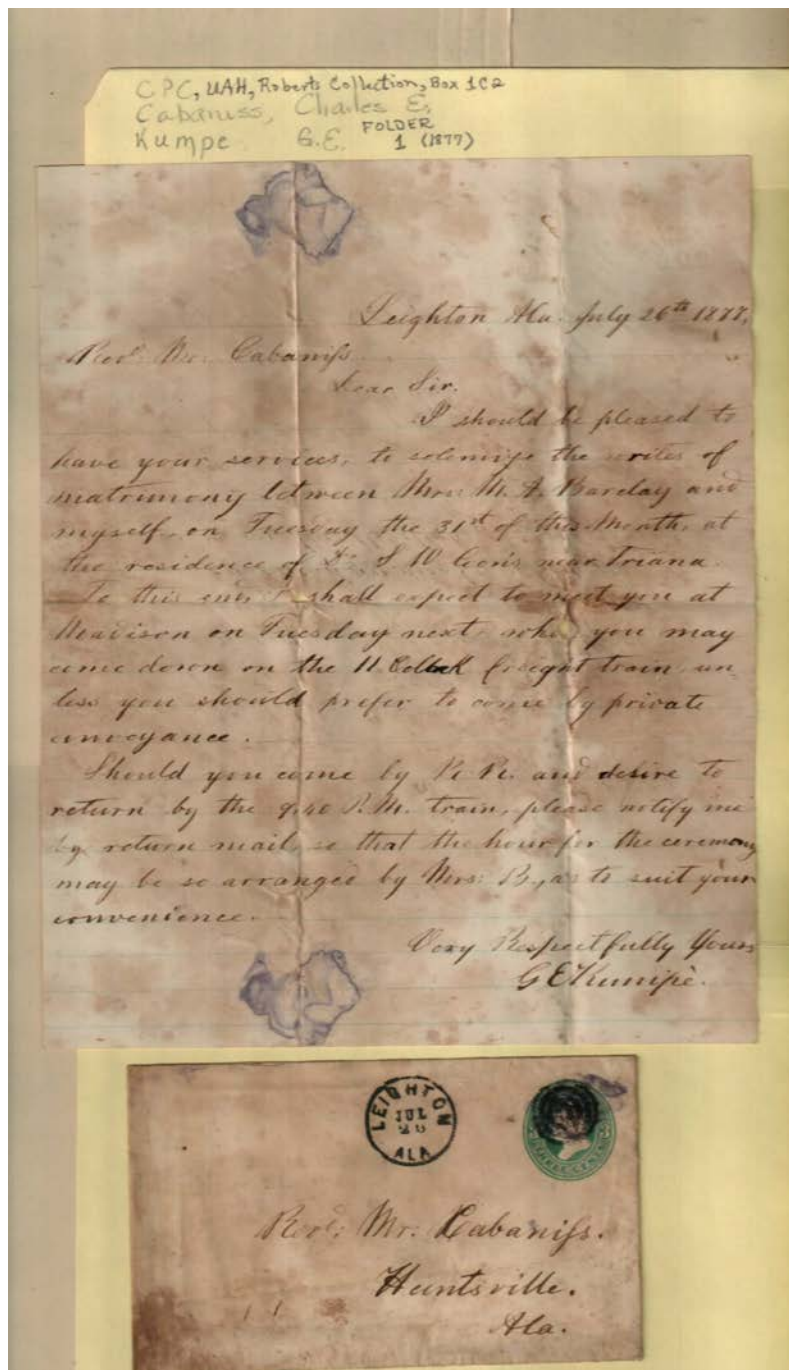 CPC, UAH, Roberts Collection, Box 1C2
Cabaniss, Charles E.
Kumpe G.E. FOLDER
1 (1877)
Leighton Ala. July 26th 1877,
Revd. Mr. Cabaniss
Dear Sir.
I should be pleased to
have your services, to solemnize the writes of
matrimony between Mrs. M. A. Barclay and
myself, on Tuesday the 31st of this Month, at
the residence of Dr. S. W. near Triana.
To this end, I shall expect to meet you at
Madison on Tuesday next, you may
come down on the 11. freight train, un-
less you should prefer to come by private
conveyance.
Should you come by R. R. and desire to
return by the 9.40 P.M. train, please notify me
by return mail, so that the hour for the ceremony
may be so arranged by Mrs: B., as to suit your
convenience.
Very Respectfully Yours
G E Kumpe.
LEIGHTON
JUL
26
ALA
THREE CENTS
Revd. Mr. Cabaniss.
Huntsville.
Ala.